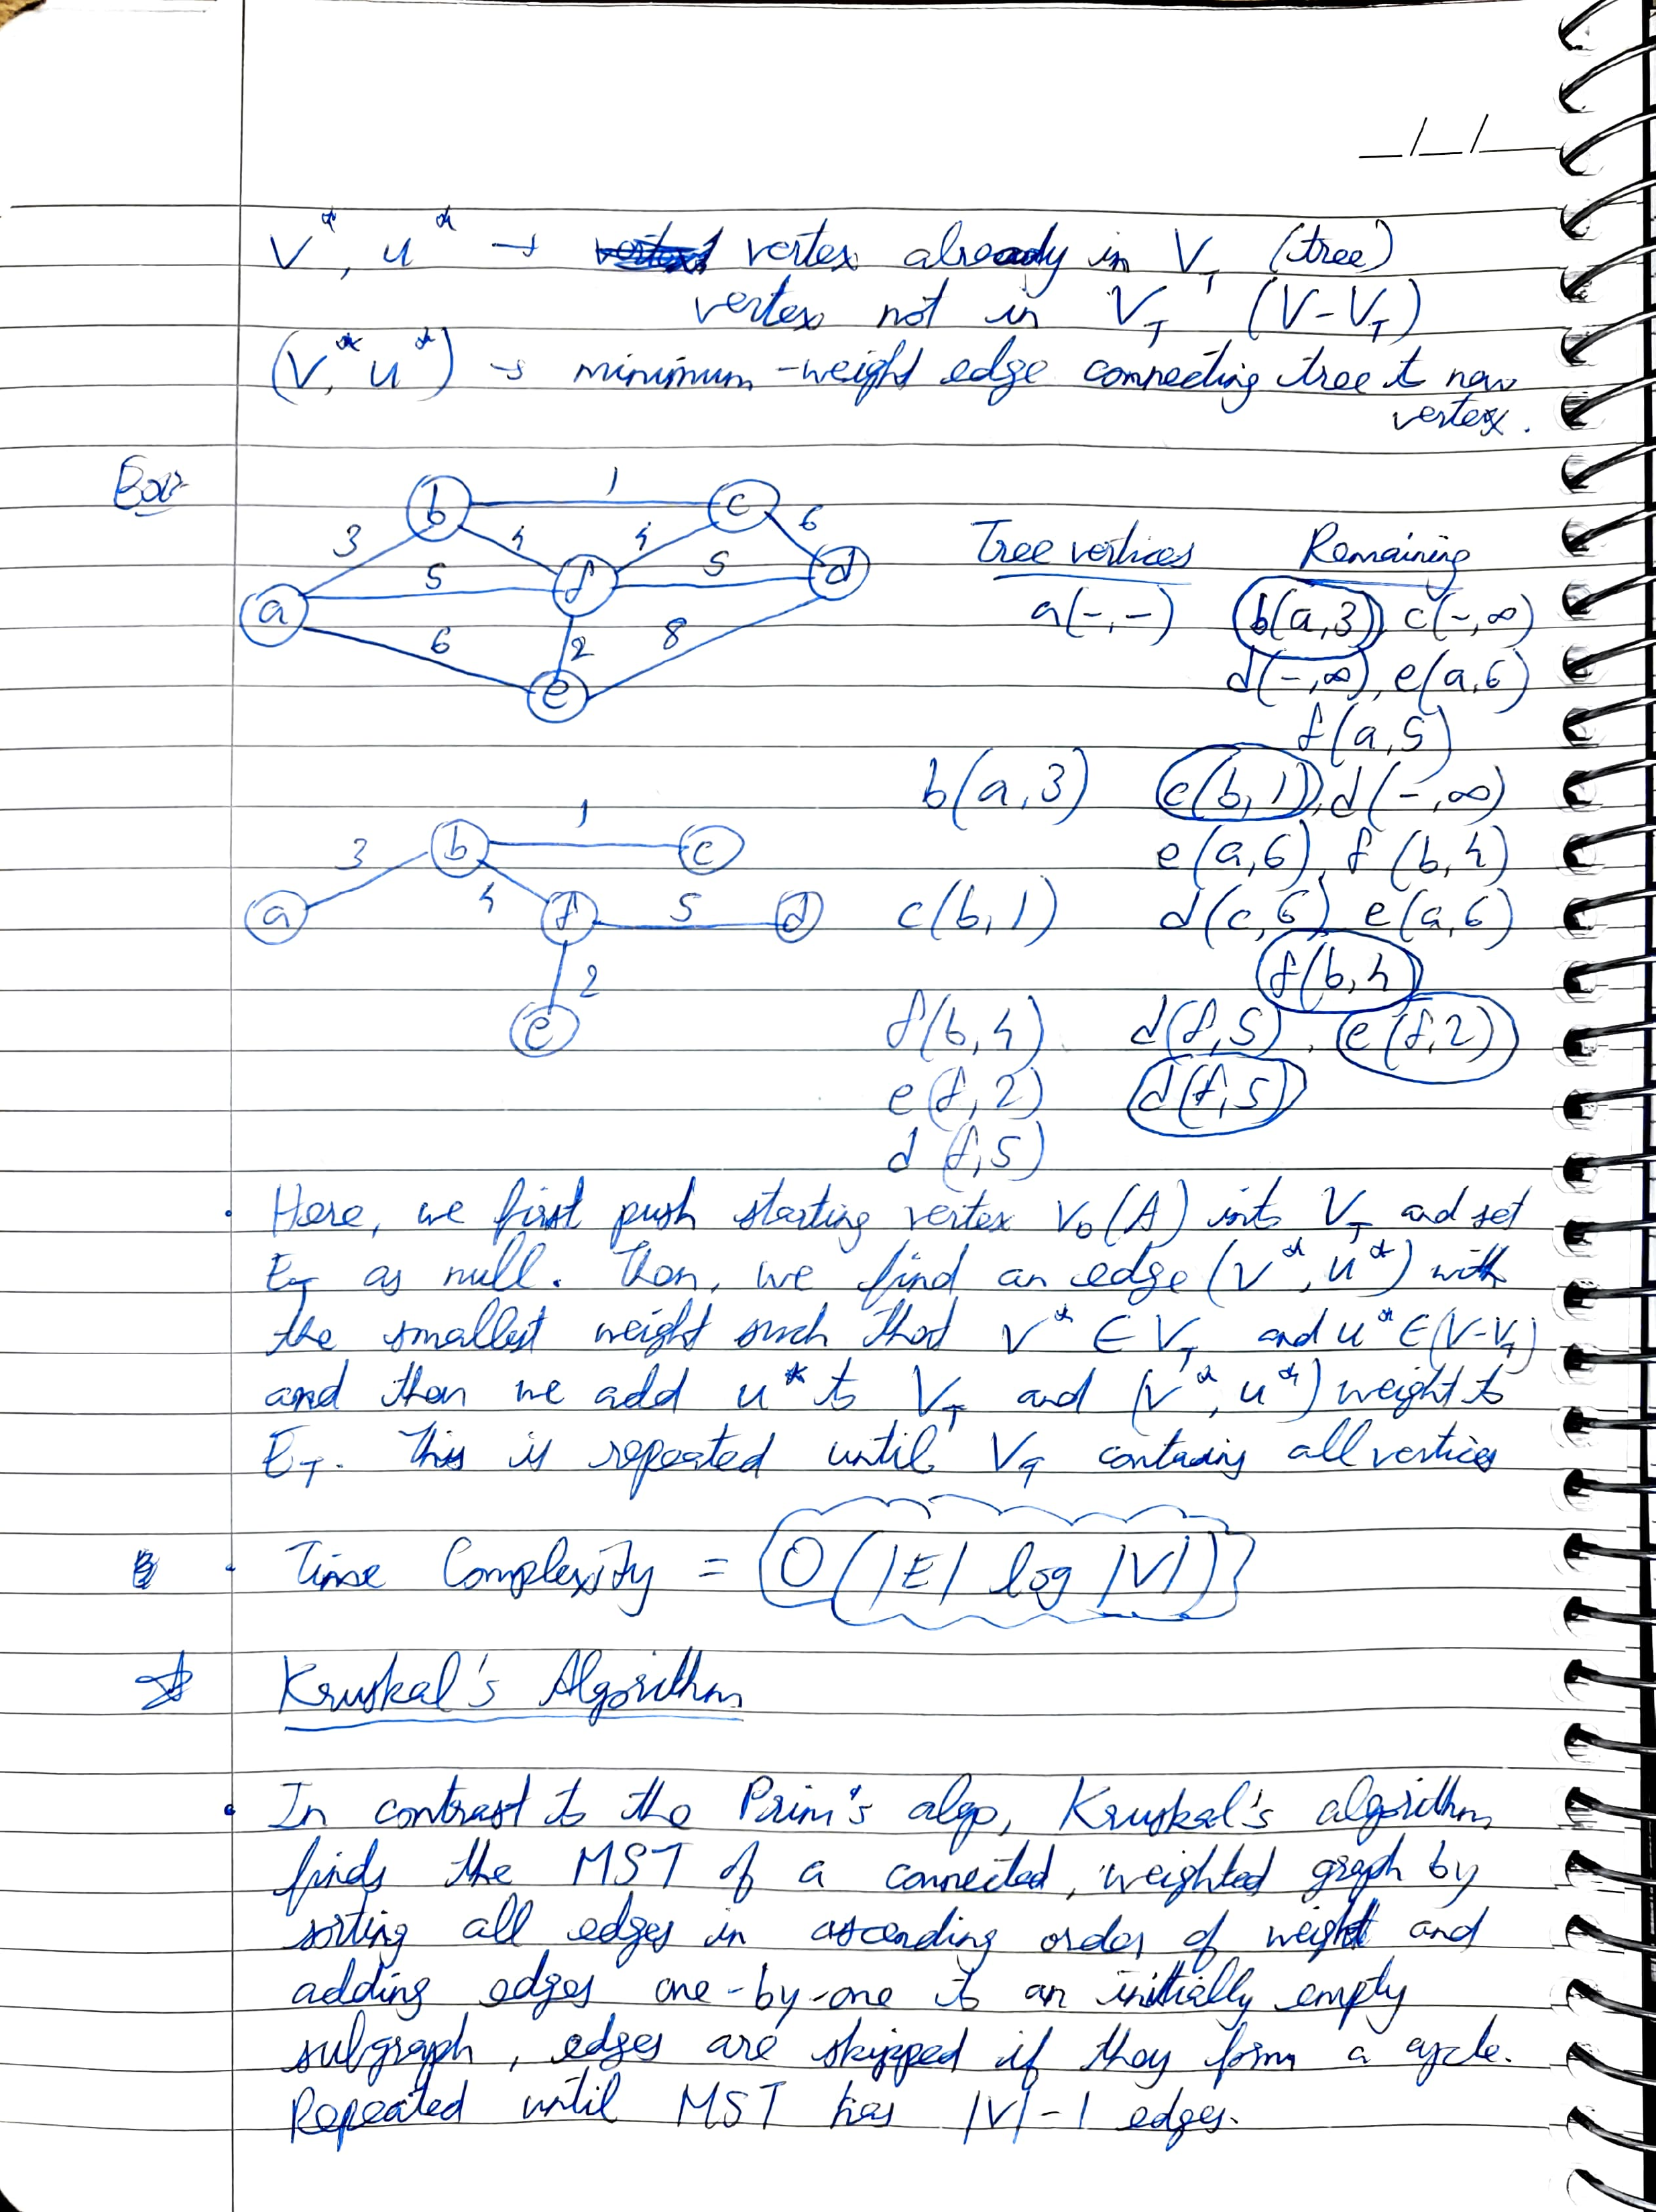 _/_/_
V*, u* → vertex already in V_T (tree)
vertex not in V_T (V-V_T)
(V*, u*) → minimum-weight edge connecting tree to new
vertex.
b 1 c
3 4 4 6
5 f 5 d
a
6 2 8
e
Tree vertices Remaining
a(-,-) b(a,3), c(-,∞)
d(-,∞), e(a,6)
f(a,5)
b(a,3) c(b,1), d(-,∞)
e(a,6), f(b,4)
c(b,1) d(c,6), e(a,6)
f(b,4)
f(b,4) d(f,5), e(f,2)
e(f,2) d(f,5)
d(f,5)
1
3 b c
a 4 f 5 d
2
e
• Here, we first push starting vertex V₀(A) into V_T and set
E_T as null. Then, we find an edge (V*, u*) with
the smallest weight such that V* ∈ V_T and u* ∈ (V-V_T)
and then we add u* to V_T and (V*, u*) weight to
E_T. This is repeated until V_T contains all vertices
• Time Complexity = O(|E| log |V|)
☆ Kruskal's Algorithm
• In contrast to the Prim's algo, Kruskal's algorithm
finds the MST of a connected, weighted graph by
sorting all edges in ascending order of weight and
adding edges one-by-one to an initially empty
subgraph, edges are skipped if they form a cycle.
Repeated until MST has |V|-1 edges.